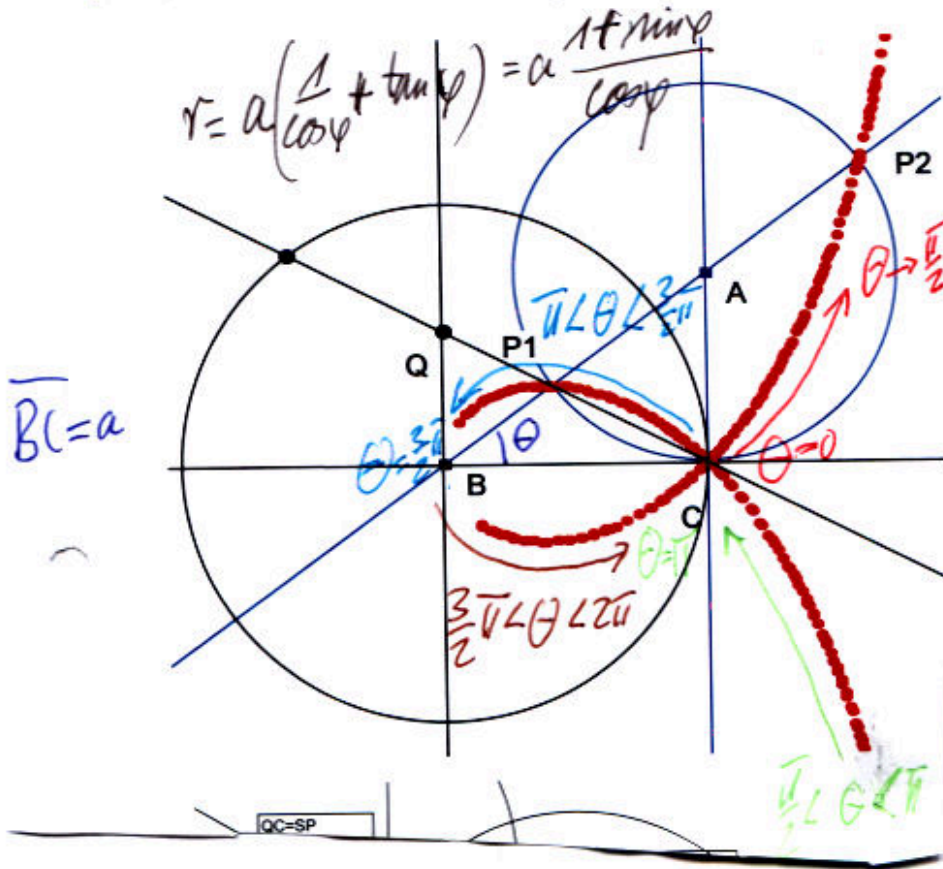 r = a(1/cosφ + tanφ) = a (1+sinφ)/cosφ
P2
θ→π/2
A
π<θ<3/2π
P1
Q
BC=a
θ
θ=3/2π
θ=0
B
C
θ=π
3/2π<θ<2π
π/2<θ<π
QC=SP